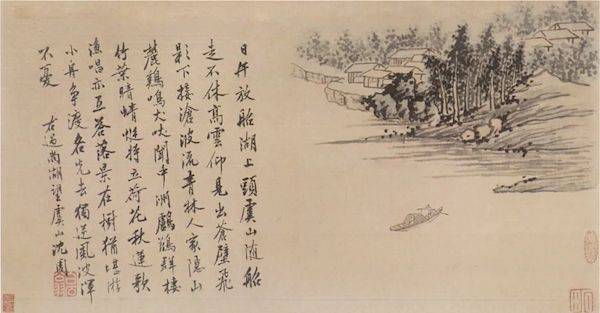 日午放船湖上頭虞山隨船
走不休高雲仰見出蒼壁飛
影下接滄波流青林人家隱山
麓鷄鳴犬吠聞中洲鸕鶿群棲
竹葉暗蜻蜓特立荷花秋蓮歌
漁唱亦互答落景在樹猶堪游
小舟爭渡各先去獨逆風波渾
不憂
右過尚湖望虞山沈周